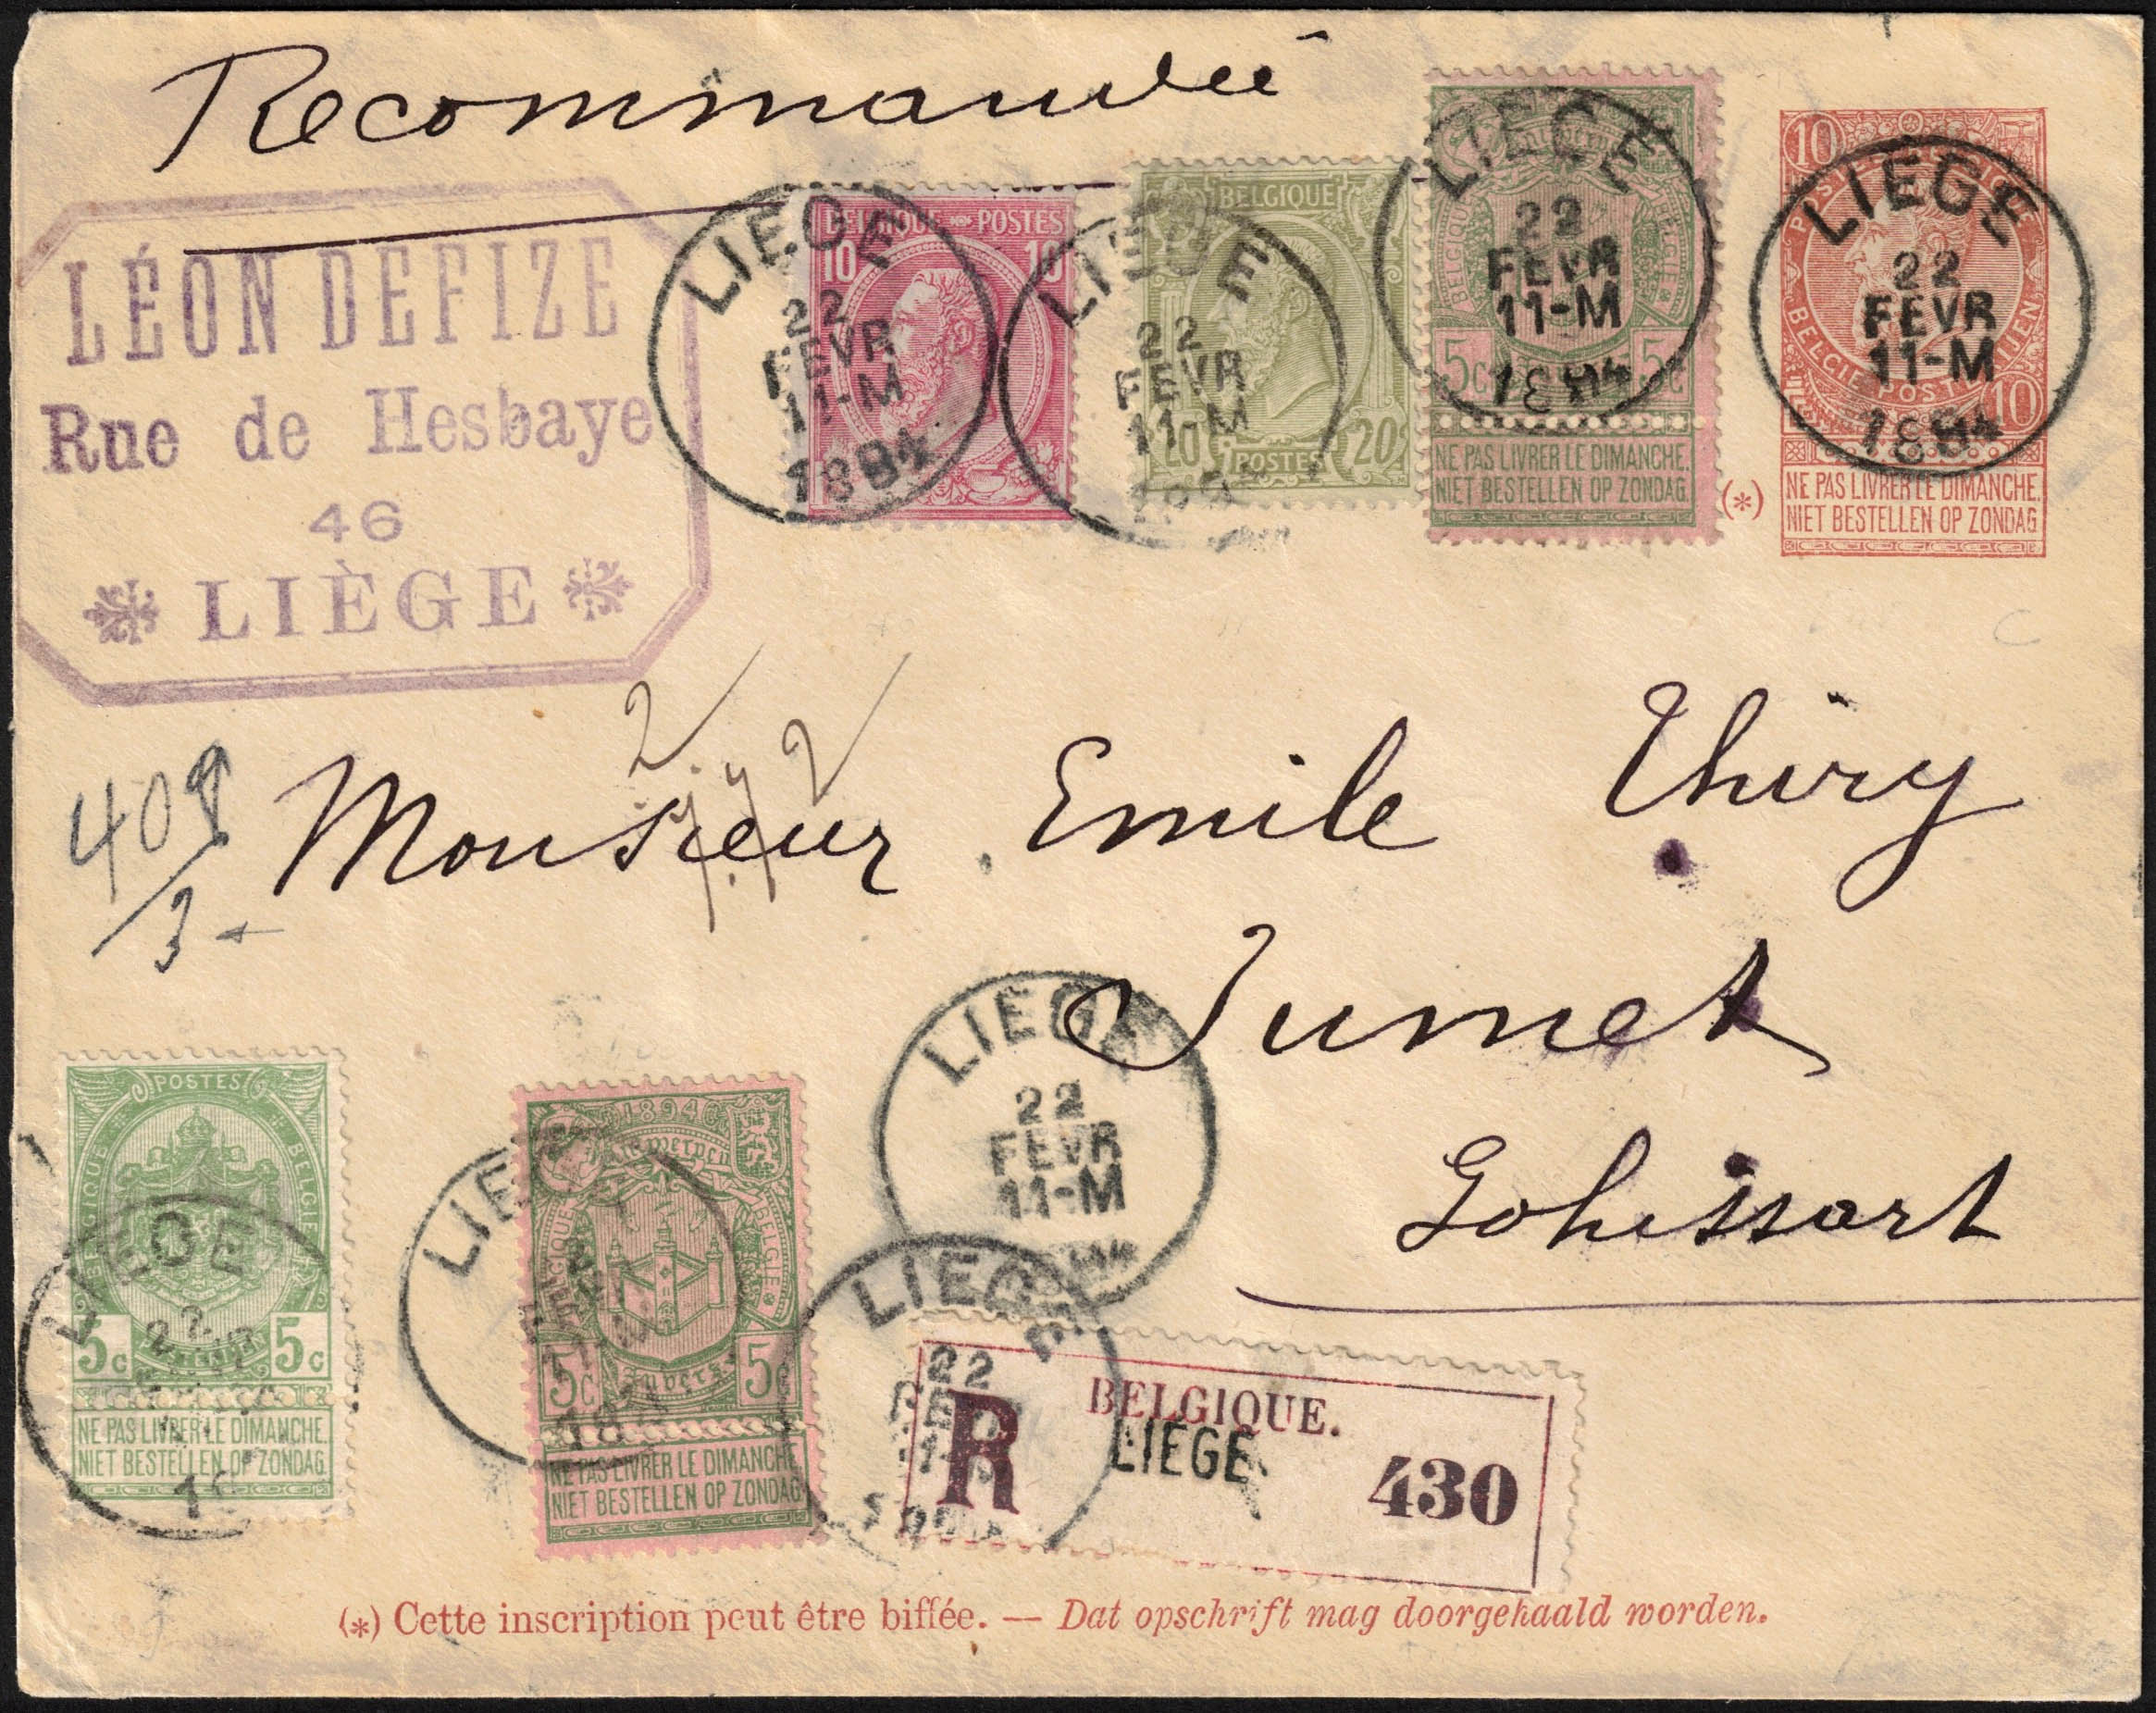 Recommandée
LÉON DEFIZE
Rue de Hesbaye
46
LIÈGE
BELGIQUE POSTES
10 10
LIEGE
22
FEVR
11-M
1894
BELGIQUE
20 POSTES 20
LIEGE
22
FEVR
11-M
BELGIQUE BELGIË
5c 5c
NE PAS LIVRER LE DIMANCHE.
NIET BESTELLEN OP ZONDAG.
LIEGE
22
FEVR
11-M
1894
10
BELGIË POSTERIJEN
10
(*) NE PAS LIVRER LE DIMANCHE.
NIET BESTELLEN OP ZONDAG
LIEGE
22
FEVR
11-M
1894
408
3-
Monsieur Emile Thiry
Jumet
Gohissart
POSTES
BELGIQUE BELGIE
5c 5c
NE PAS LIVRER LE DIMANCHE.
NIET BESTELLEN OP ZONDAG.
LIEGE
22
1894
Antwerpen
BELGIQUE BELGIE
5c Anvers 5c
NE PAS LIVRER LE DIMANCHE
NIET BESTELLEN OP ZONDAG
LIEGE
22
FEVR
11-M
LIEGE
22
R
BELGIQUE.
LIEGE
430
(*) Cette inscription peut être biffée. — Dat opschrift mag doorgehaald worden.